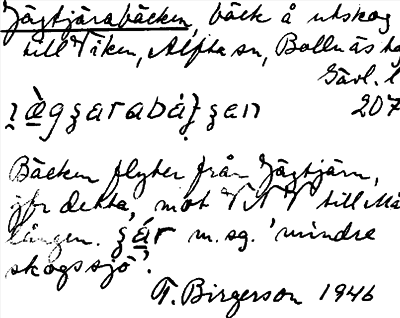 Jägtjärabäcken, bäck å utskog
till Viken, Alfta sn, Bollnäs
Gävl. l
207
Bäcken flyter från Jägtjärn,
jfr detta, mot VNV till Mä
lången. m. sg. 'mindre
skogssjö'.
T. Birgerson 1946